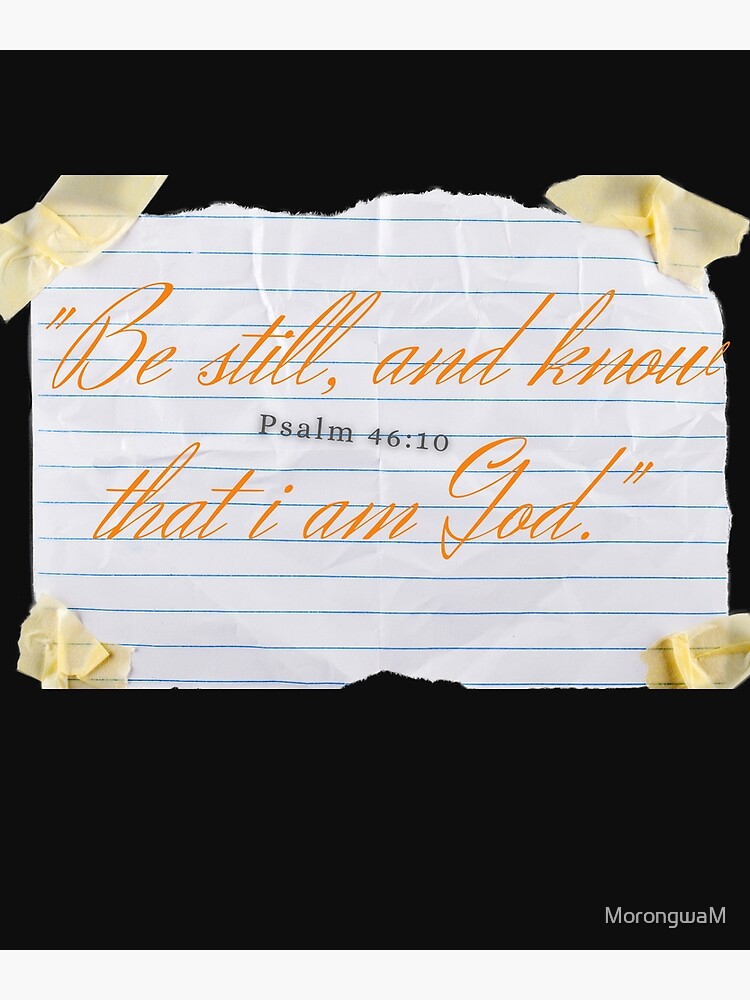 "Be still, and know
Psalm 46:10
that i am God."
MorongwaM